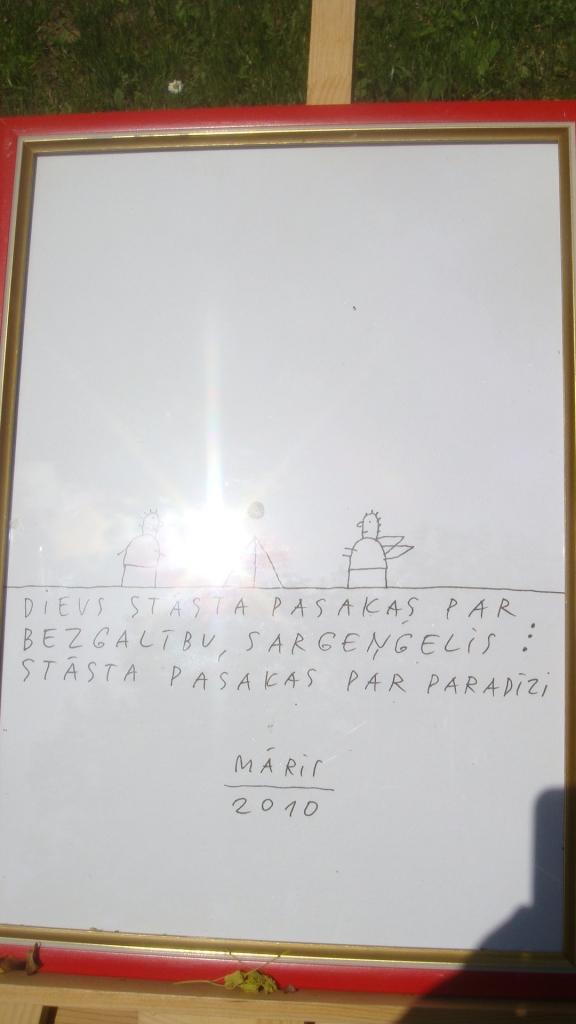 DIEVS STĀSTA PASAKAS PAR
BEZGALĪBU, SARGEŅĢELIS :
STĀSTA PASAKAS PAR PARADĪZI
MĀRIS
2010